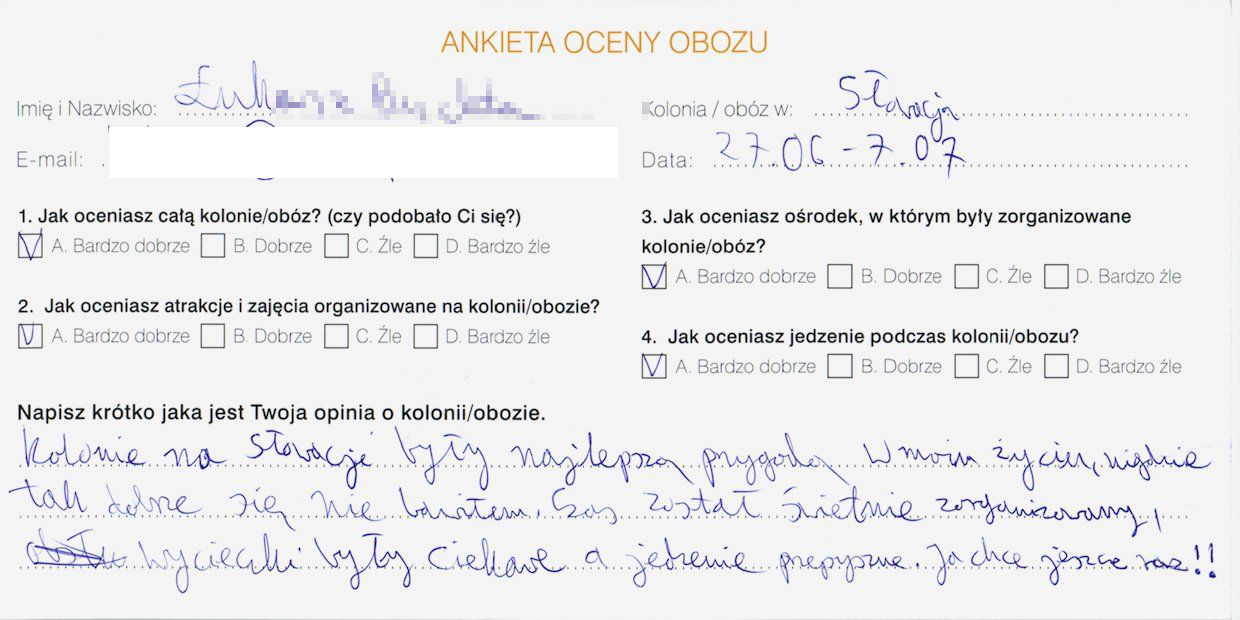 ANKIETA OCENY OBOZU
Imię i Nazwisko:
Kolonia / obóz w: Słowacja
E-mail:
Data: 27.06 - 7.07
1. Jak oceniasz całą kolonie/obóz? (czy podobało Ci się?)
V A. Bardzo dobrze B. Dobrze C. Źle D. Bardzo źle
2. Jak oceniasz atrakcje i zajęcia organizowane na kolonii/obozie?
V A. Bardzo dobrze B. Dobrze C. Źle D. Bardzo źle
3. Jak oceniasz ośrodek, w którym były zorganizowane
kolonie/obóz?
V A. Bardzo dobrze B. Dobrze C. Źle D. Bardzo źle
4. Jak oceniasz jedzenie podczas kolonii/obozu?
V A. Bardzo dobrze B. Dobrze C. Źle D. Bardzo źle
Napisz krótko jaka jest Twoja opinia o kolonii/obozie.
Kolonie na Słowacji były najlepszą przygodą w moim życiu, nigdzie
tak dobrze się nie bawiłem. Czas został świetnie zorganizowany,
wycieczki były ciekawe a jedzenie przepyszne. Ja chcę jeszcze raz!!